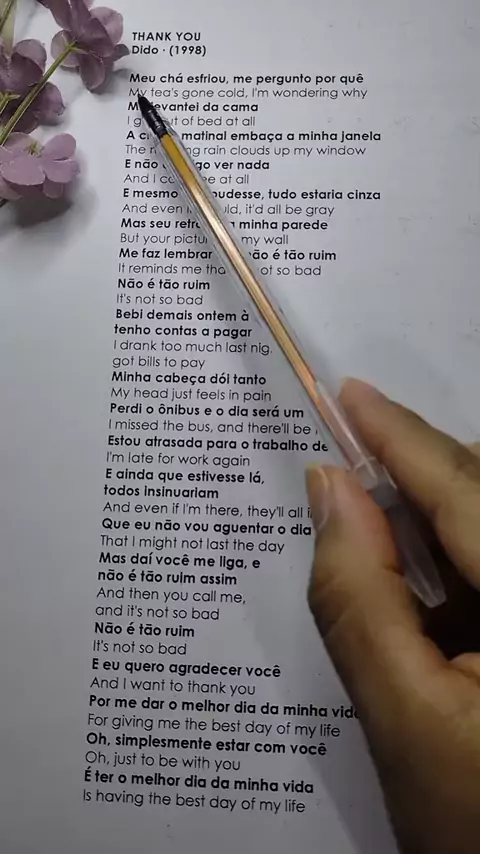 THANK YOU
Dido · (1998)
Meu chá esfriou, me pergunto por quê
My tea's gone cold, I'm wondering why
levantei da cama
I out of bed at all
A matinal embaça a minha janela
The rain clouds up my window
E não ver nada
And I at all
E mesmo tudo estaria cinza
And even it'd all be gray
Mas seu minha parede
But your my wall
Me faz lembrar não é tão ruim
It reminds me not so bad
Não é tão ruim
It's not so bad
Bebi demais ontem à
tenho contas a pagar
I drank too much last
got bills to pay
Minha cabeça dói tanto
My head just feels in pain
Perdi o ônibus e o dia será um
I missed the bus, and there'll be
Estou atrasada para o trabalho
I'm late for work again
E ainda que estivesse lá,
todos insinuariam
And even if I'm there, they'll all
Que eu não vou aguentar o dia
That I might not last the day
Mas daí você me liga, e
não é tão ruim assim
And then you call me,
and it's not so bad
Não é tão ruim
It's not so bad
E eu quero agradecer você
And I want to thank you
Por me dar o melhor dia da minha vida
For giving me the best day of my life
Oh, simplesmente estar com você
Oh, just to be with you
É ter o melhor dia da minha vida
Is having the best day of my life